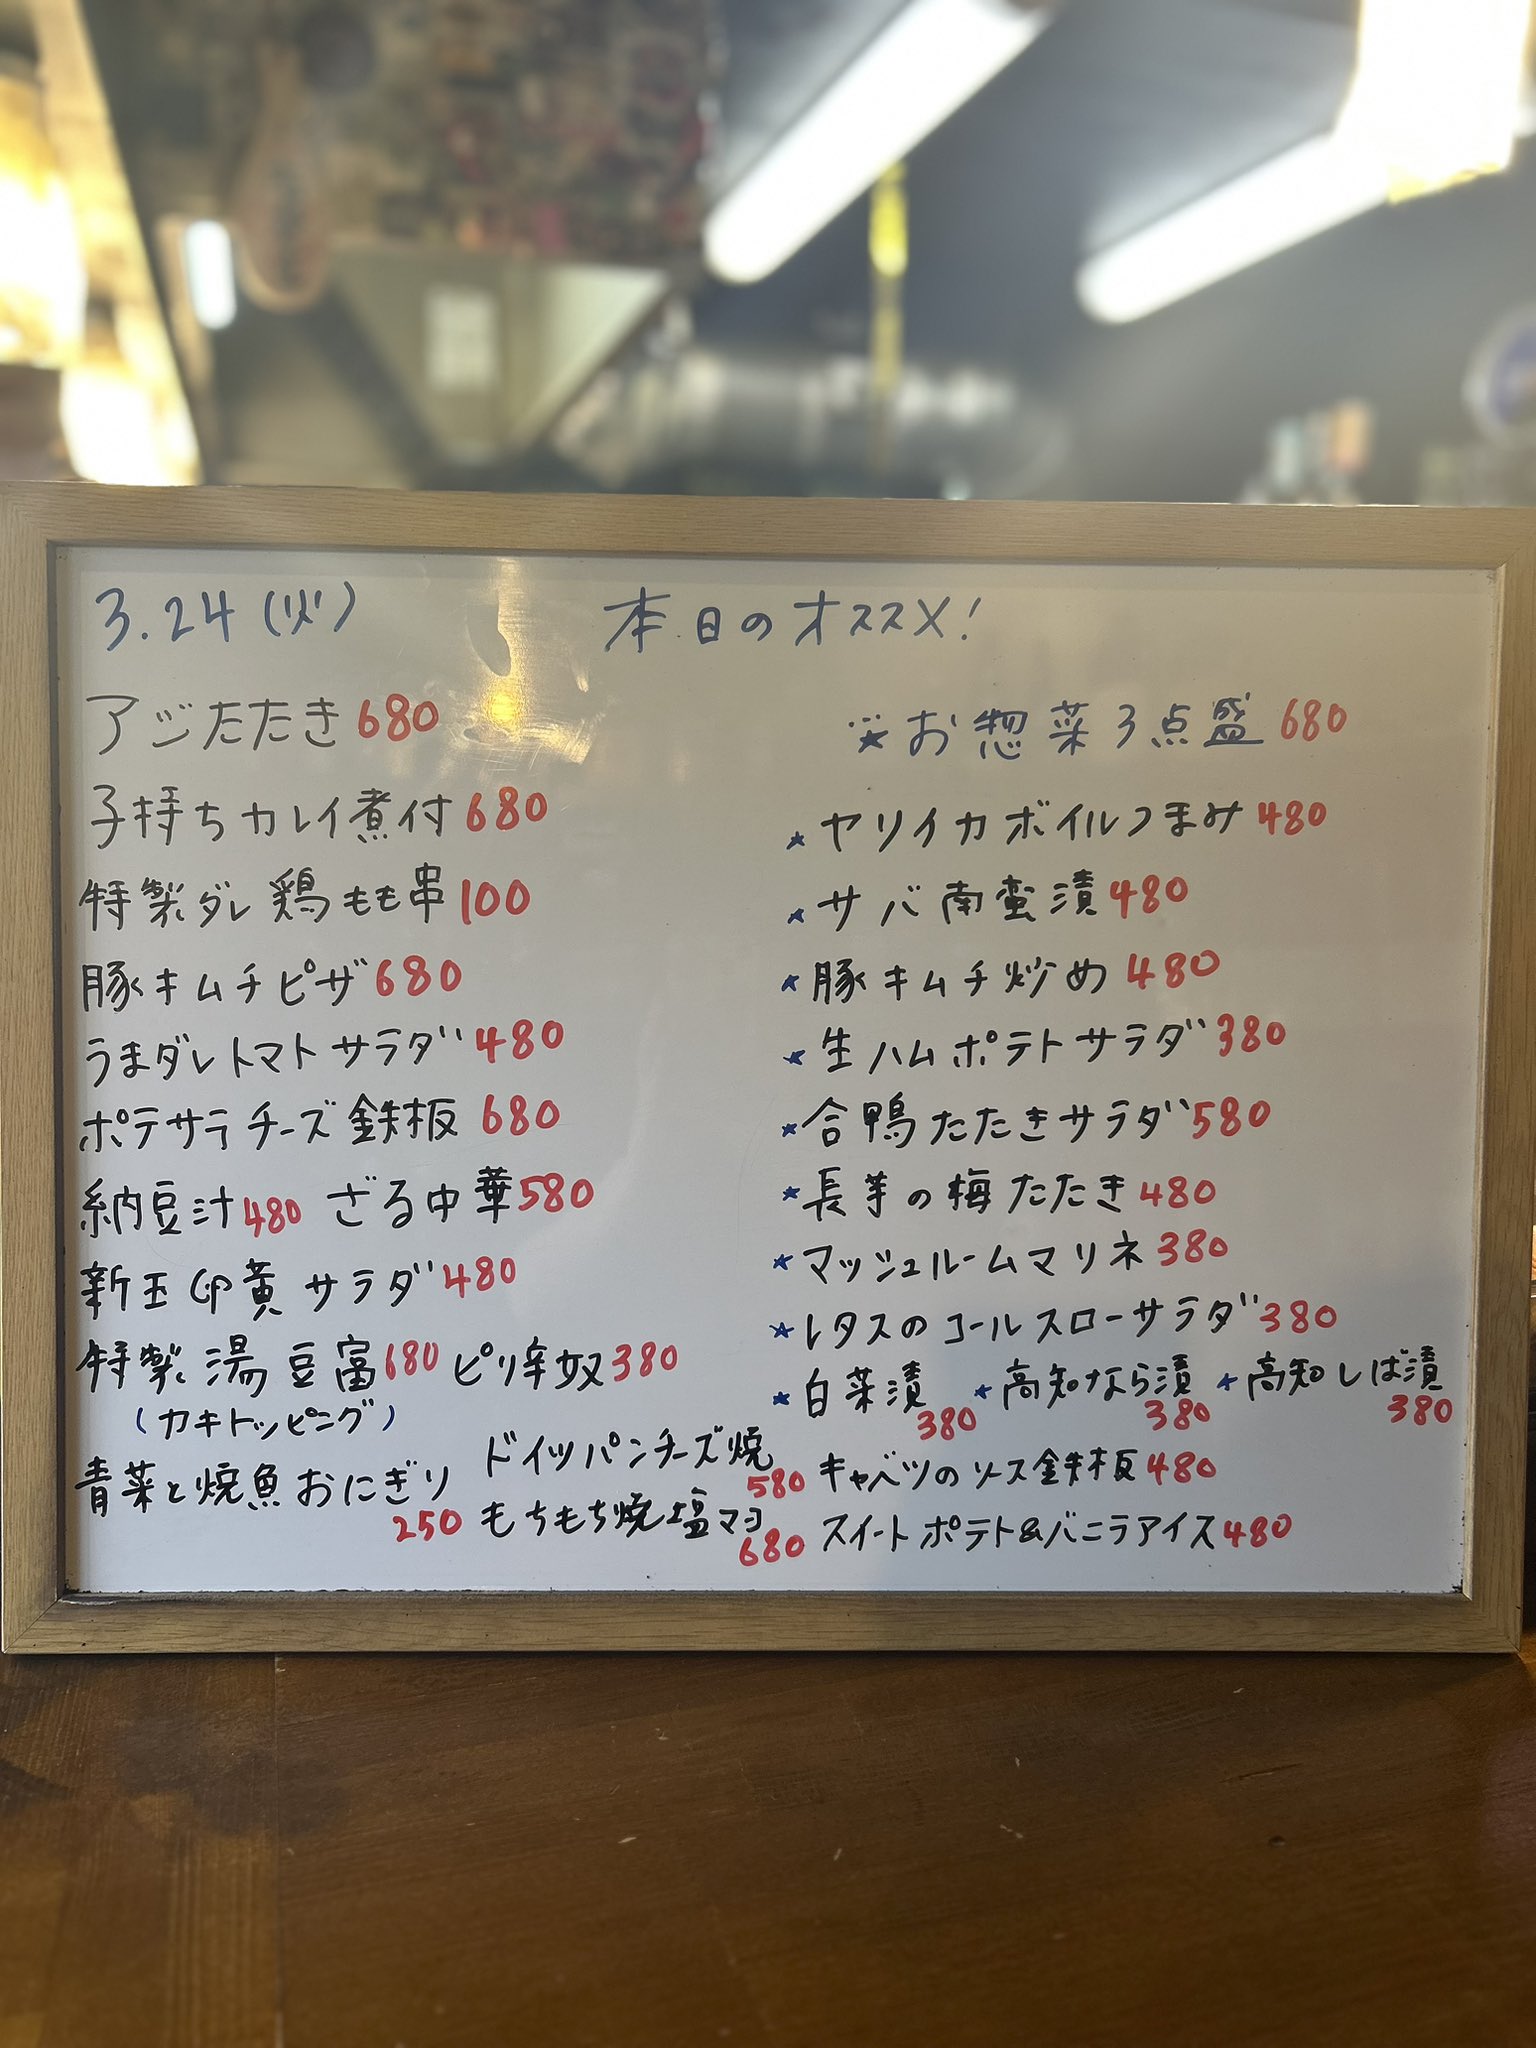 3.24(火) 本日のオススメ!
アジたたき680
子持ちカレイ煮付680
特製ダレ鶏もも串100
豚キムチピザ680
うまダレトマトサラダ480
ポテサラチーズ鉄板680
納豆汁480 ざる中華580
新玉卵黄サラダ480
特製湯豆富680 ピリ辛奴380
(カキトッピング)
青菜と焼魚おにぎり250
ドイツパンチーズ焼580
もちもち焼塩マヨ680
※お惣菜3点盛680
★ヤリイカボイルつまみ480
★サバ南蛮漬480
★豚キムチ炒め480
★生ハムポテトサラダ380
★合鴨たたきサラダ580
★長芋の梅たたき480
★マッシュルームマリネ380
★レタスのコールスローサラダ380
★白菜漬380 ★高知なら漬380 ★高知しば漬380
キャベツのソース鉄板480
スイートポテト&バニラアイス480